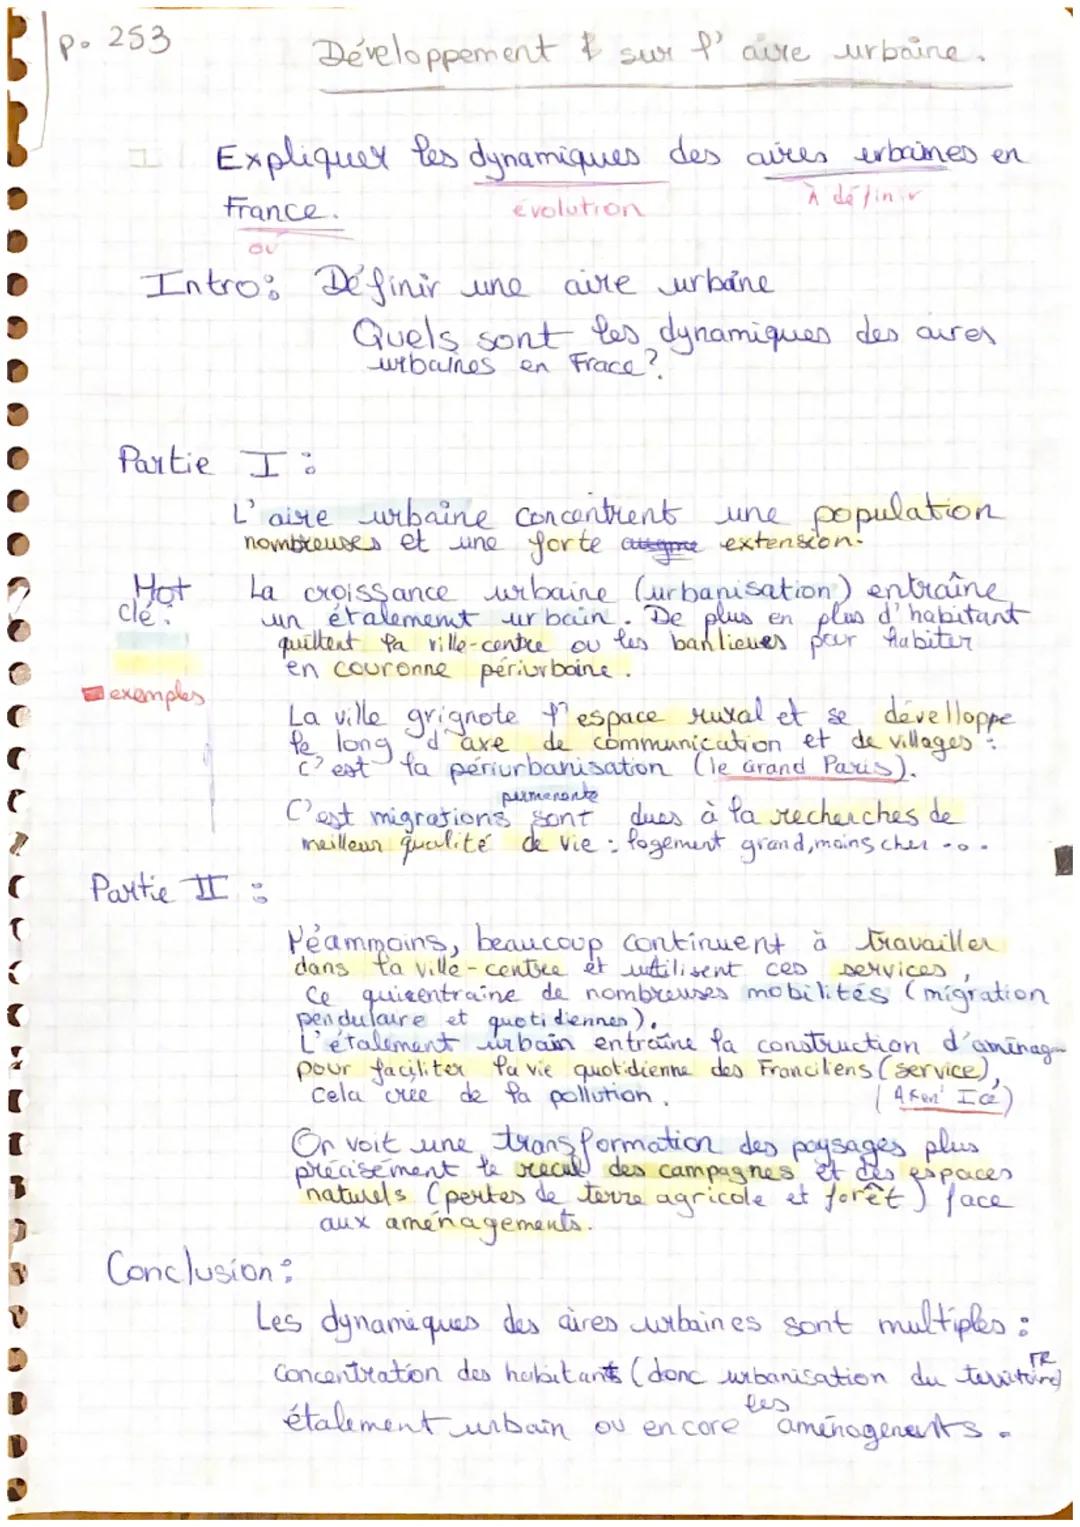 p. 253
Développement sur l'aire urbaine.
I
Expliquer les dynamiques des aires urbaines en
évolution
À définir
France.
ou
Intro: Définir une aire urbaine
Quels sont les dynamiques des aires
urbaines en Frace?
Partie I :
L'aire urbaine concentrent une population
nombreuses et une forte extension.
Mot
clé :
La croissance urbaine (urbanisation) entraîne
un étalement urbain. De plus en plus d'habitant
quittent la ville-centre ou les banlieues pour habiter
en couronne périurbaine.
exemples
La ville grignote l'espace rural et se dévelloppe
le long d'axe de communication et de villages :
c'est la périurbanisation (le Grand Paris).
permanente
C'est migrations sont dues à la recherches de
meilleur qualité de vie : logement grand, moins cher ...
Partie II :
Néammoins, beaucoup continuent à travailler
dans la ville-centre et utilisent ces services,
ce qui entraine de nombreuses mobilités (migration
pendulaire et quotidiennes).
L'étalement urbain entraîne la construction d'aménag
pour faciliter la vie quotidienne des Franciliens (service),
Cela crée de la pollution.
On voit une transformation des paysages plus
précisément le recul des campagnes et des espaces
naturels (pertes de terre agricole et forêt) face
aux aménagements.
Conclusion :
Les dynamiques des aires urbaines sont multiples :
FR
concentration des habitants (donc urbanisation du territoire)
les
étalement urbain ou encore aménagements.